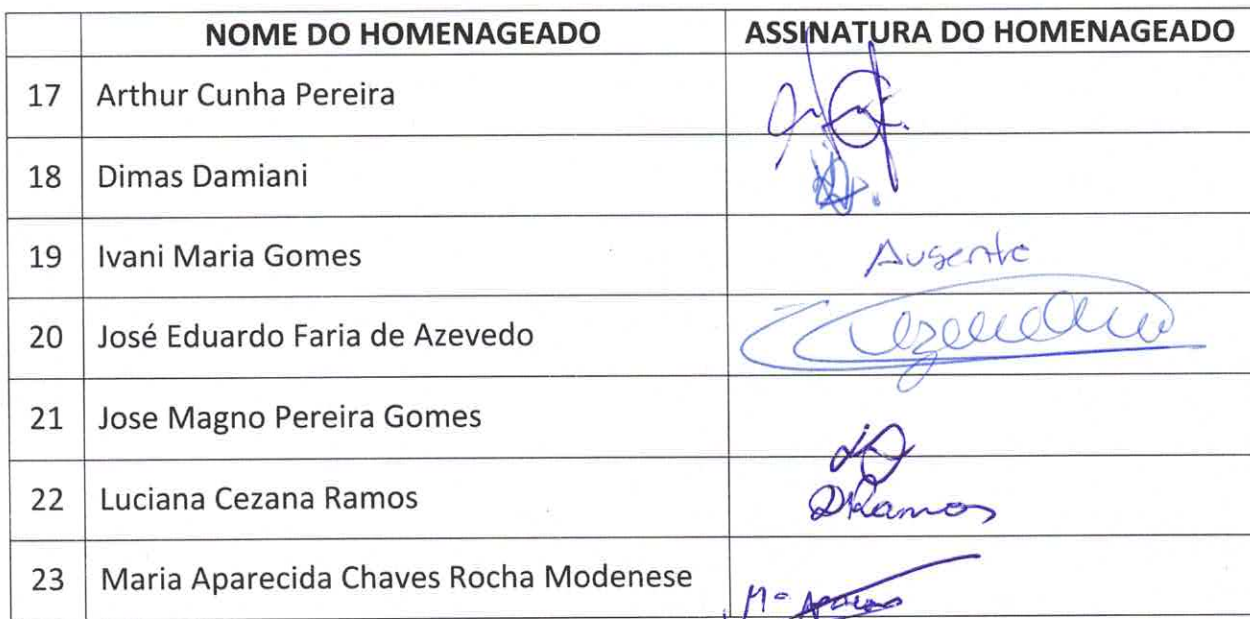 NOME DO HOMENAGEADO ASSINATURA DO HOMENAGEADO
17 Arthur Cunha Pereira
18 Dimas Damiani
19 Ivani Maria Gomes Ausente
20 José Eduardo Faria de Azevedo
21 Jose Magno Pereira Gomes
22 Luciana Cezana Ramos Ramos
23 Maria Aparecida Chaves Rocha Modenese Mª